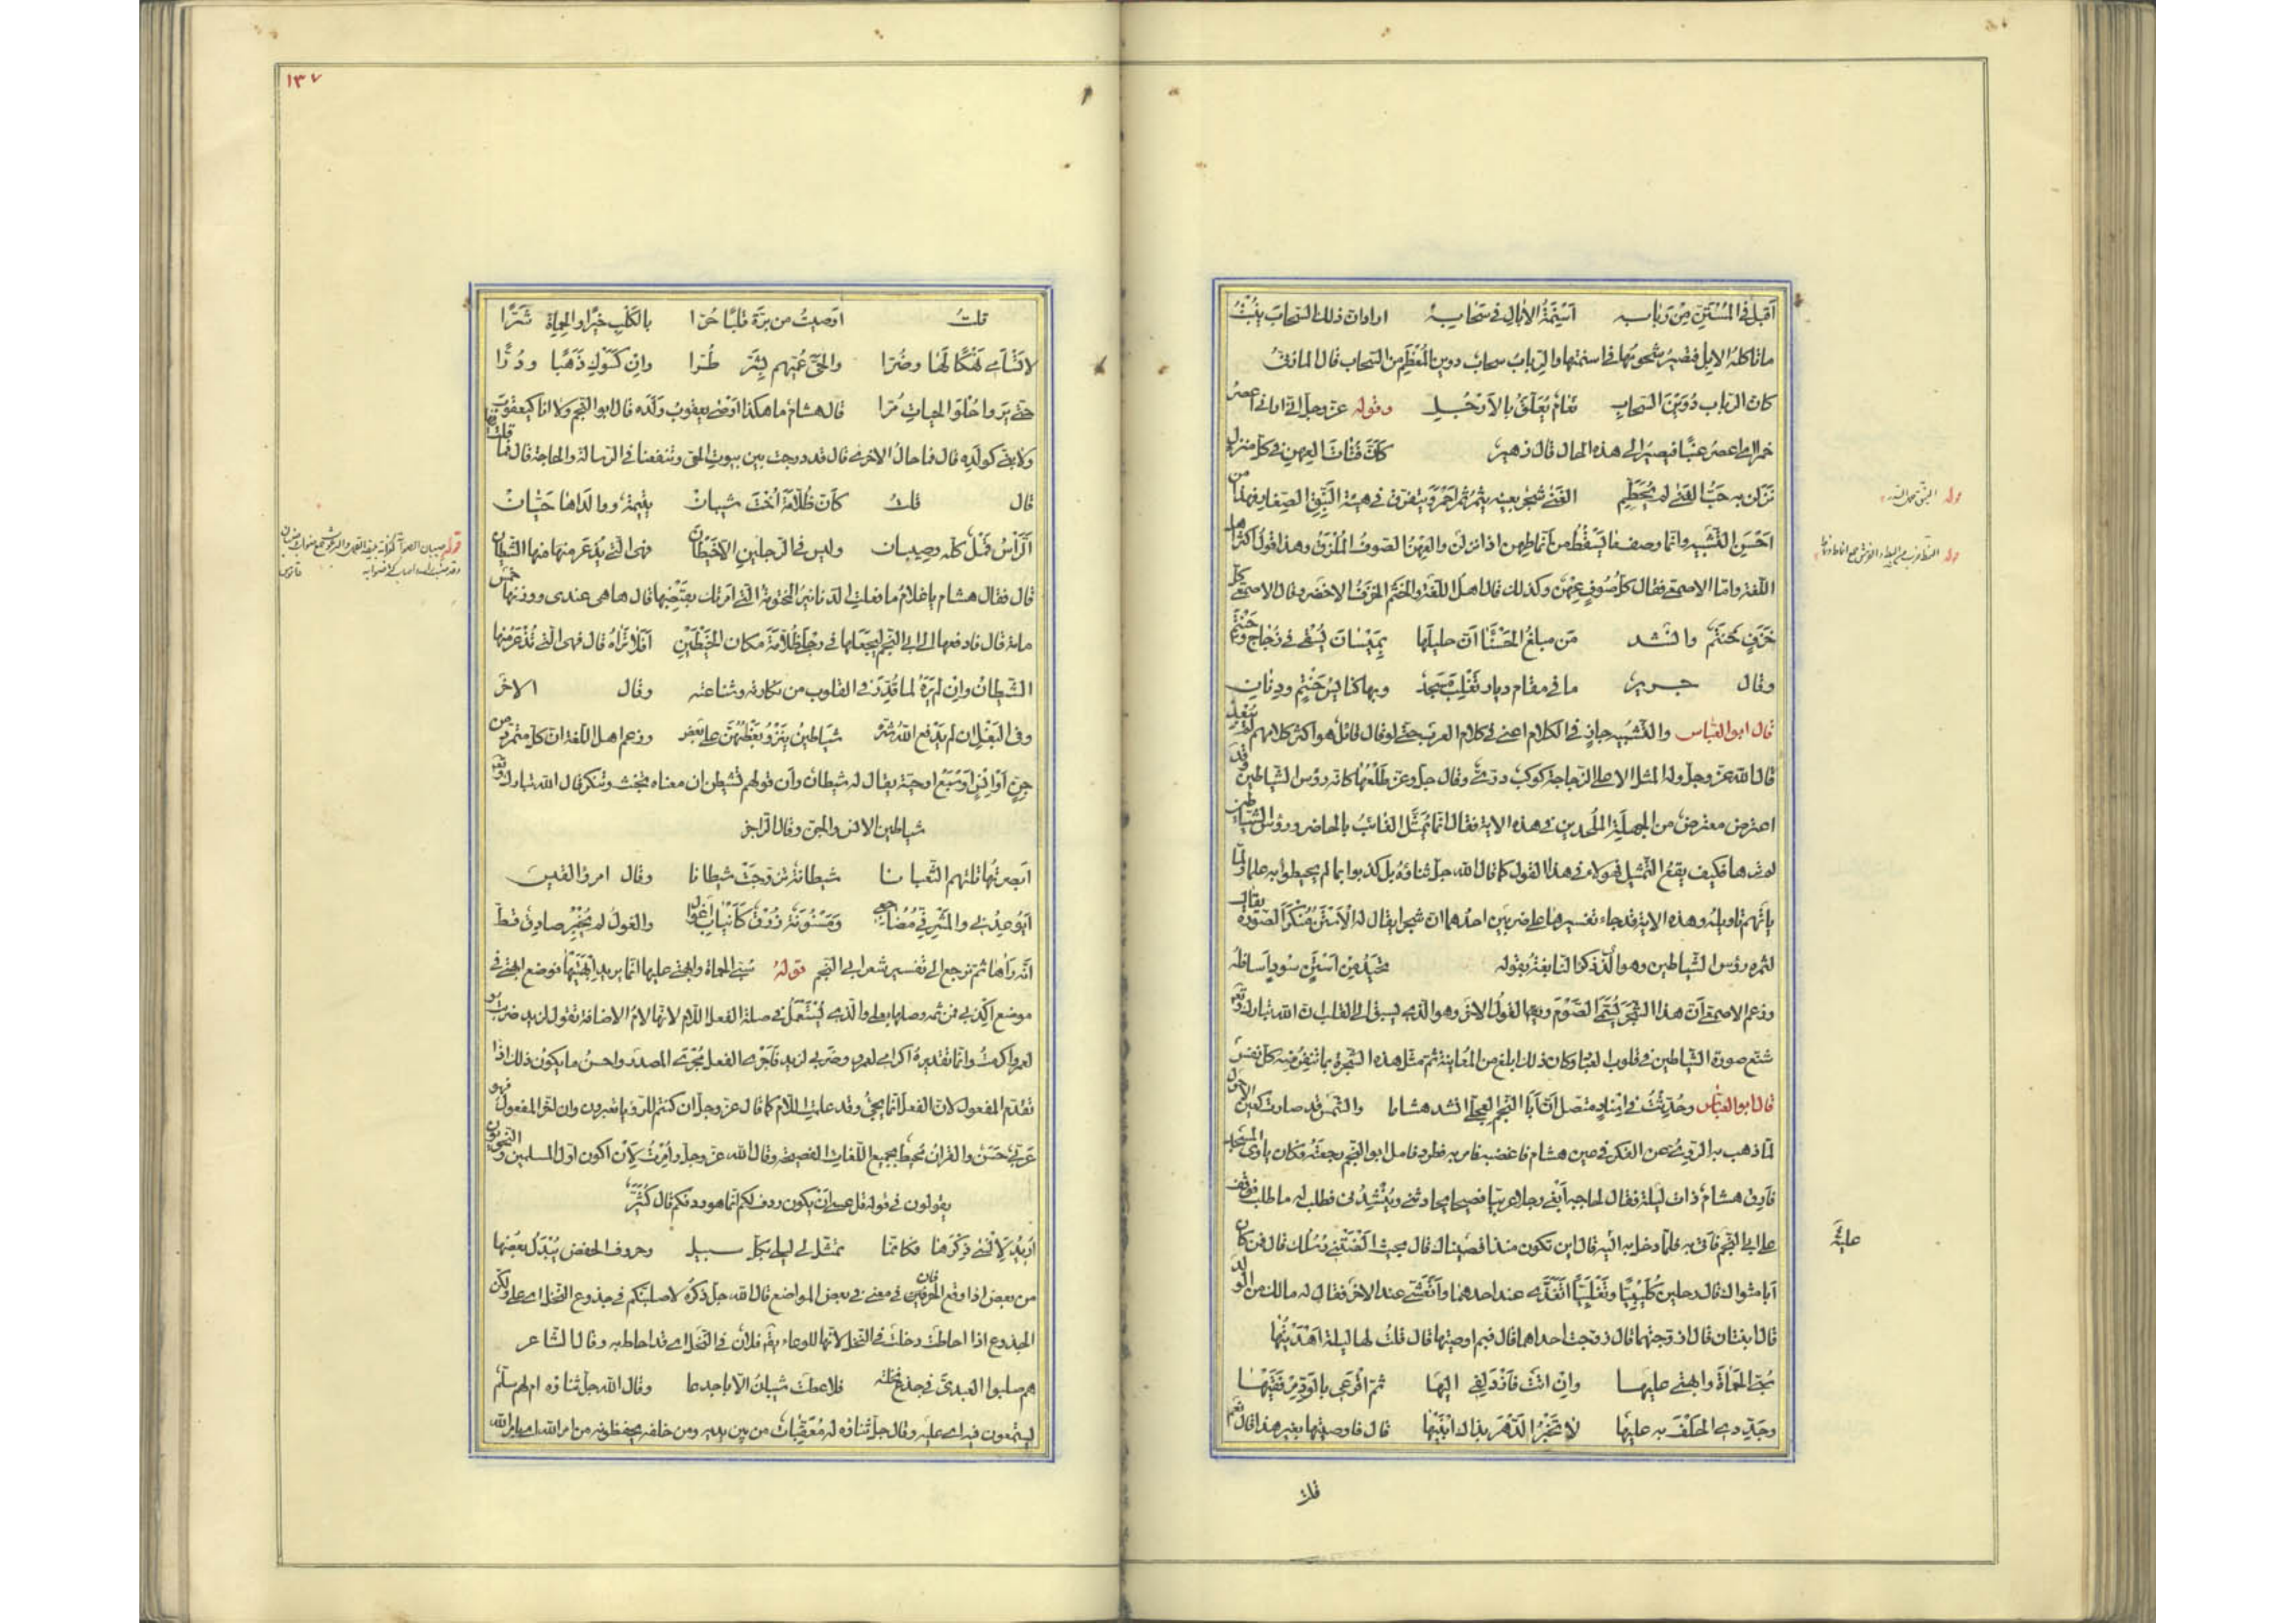 أقبل في المستن من ربابه أسنمة الآبال في سحابه اراد ان ذلك السحاب ينبت
ما تاكله الابل فتصير شحومها في اسنمتها والرباب سحاب دوين المعظم من السحاب قال المازني
كان الرباب دوين السحاب نعام يعلق بالارجل وقوله عز وجل اني اراني اعصر
خمرا اي اعصر عنبا فيصير الى هذه الحال قال زهير كأن فتات العهن في كل منزل
نزلن به حب الفنى لم يحطم الفنى شجر بعينه يثمر ثمرا احمر ويتفرق في هيئة النبق الصغار فهذا من
احسن التشبيه وانما وصف ما يسقط من انماطهن اذا نزلن والعهن الصوف الملون وهذا قول اكثر اهل
اللغة واما الاصمعي فقال كل صوف عهن وكذلك قال اهل اللغة والحنتم الخزف الاخضر وقال الاصمعي كل
خزف حنتم وانشد من مبلغ الحسنا ان حليلها بميسان يسقى في زجاج وحنتم
وقال جرير ما في مقام ديار تغلب مسجد وبها كنايس حنتم ودنان
قال ابو العباس والتشبيه جار في الكلام اعني في كلام العرب حتى لو قال قائل هو اكثر كلامهم لم يبعد
قال الله عز وجل وله المثل الاعلى الزجاجة كوكب دري وقال جل وعز طلعها كانه رؤس الشياطين وقد
اعترض معترض من الجهلة الملحدين في هذه الاية فقال انما يمثل الغائب بالحاضر ورؤس الشياطين
لم نرها فكيف يقع التمثيل فهولاء في هذا القول كما قال الله جل ثناؤه بل كذبوا بما لم يحيطوا بعلمه ولما
ياتهم تاويله وهذه الاية قد جاء تفسيرها على ضربين احدهما ان شجرا يقال له الاستن منكر الصورة يقال
لثمره رؤس الشياطين وهو الذي ذكر النابغة بقوله تحيد من استن سود اسافله
وزعم الاصمعي ان هذا الشجر يسمى الصوم وبعد القول الاخر وهو الذي يسبق الى القلب ان الله تبارك وتعالى
شنع صورة الشياطين في قلوب العباد وكان ذلك ابلغ من المعاينة ثم مثل هذه الشجرة بما تنفر منه كل نفس
قال ابو العباس وحدثت في اسناد متصل ان ابا النجم العجلي انشد هشاما والشمس قد صارت كعين الاحول
لما ذهب به الروي عن الفكر في عين هشام فاغضبه فامر به فطرد فامل ابو النجم رجعته فكان ياوي المسجد
فارق هشام ذات ليلة فقال لحاجبه ابغني رجلا عربيا فصيحا يحادثني وينشدني فطلب له ما طلب فوقف
على ابي النجم فاتى به فلما دخل به اليه قال اين تكون منذ اقصيناك قال بحيث الفتني رسلك قال فمن كان
ابا مثواك قال رجلين كلبيا وتغلبيا اتغدى عند احدهما واتعشى عند الاخر فقال له مالك من الولد
قال ابنتان قال ازوجتهما قال زوجت احداهما قال فيم اوصيتها قال قلت لها ليلة اهديتها
سبي الحماة وابهتي عليها وان ابت فازدلفي اليها ثم اقرعي بالود مرفقيها
وجددي الحلف به عليها لا تخبر الدهر بذاك ابنيها قال فاوصيتها بغير هذا قال نعم
قلت
قوله النبق حمل السدر
علية
١٣٧
قلت اوصيت من برة قلبا حرا بالكلب خيرا والحماة شرا
لا تسأمي نهكا لها وضرا والحي عميهم بشر طرا وان كسوك ذهبا ودرا
حتى يروا حلو الحياة مرا قال هشام ما هكذا اوصى يعقوب ولده قال ابو النجم ولا انا كيعقوب
ولا بني كولده قال فما حال الاخرى قال قد درجت بين بيوت الحي وتنفعنا في الرسالة والحاجة قال فما قلت فيها
قال قلت كأن ظلامة اخت شيبان يتيمة ووالداها حيان
الرأس قمل كله وصيبان وليس في الرجلين الا خيطان فهي التي يذعر منها الشيطان
قال فقال هشام يا غلام ما فعلت الدنانير المختومة التي امرتك بقبضها قال ها هي عندي ووزنها خمس
مائة قال فادفعها الى ابي النجم ليجعلها في رجلي ظلامة مكان الخيطين افلا تراه قال فهي التي يذعر منها
الشيطان وان لم يره لما قرر في القلوب من نكارته وشناعته وقال الاخر
وفي البقل ان لم يدفع الله شره شياطين ينزو بعضهن على بعض وزعم اهل اللغة ان كل متمرد من
جن او انس او سبع او حية يقال له شيطان وان قولهم تشيطن ان معناه تخبث وتنكر قال الله تبارك وتعالى
شياطين الانس والجن وقال الراجز
ابصرتها تلتهم الثعبانا شيطانة تزوجت شيطانا وقال امرؤ القيس
ايوعدني والمشرفي مضاجعي ومسنونة زرق كأنياب اغوال والغول لم يخبر صادق قط
انه راها ثم نرجع الى تفسير شعر ابي النجم قوله سبي الحماة وابهتي عليها انما يريد ابهتيها فوضع ابهتي في
موضع اكذبي فمن ثم وصلها بعلى والذي يستعمل في صلة الفعل اللام لانها لام الاضافة تقول لزيد ضربت
لعمرو اكرمت وانما تقديره اكرامي لعمرو وضربي لزيد فاجرى الفعل مجرى المصدر واحسن ما يكون ذلك اذا
تقدم المفعول لان الفعل انما يجيء وقد عملت اللام كما قال عز وجل ان كنتم للرؤيا تعبرون وان اخر المفعول فهو
عربي حسن والقران محيط بجميع اللغات الفصيحة وقال الله عز وجل وامرت لان اكون اول المسلمين والنحويون
يقولون في قوله قل عسى ان يكون ردف لكم انما هو ردفكم قال كثير
اريد لانسى ذكرها فكانما تمثل لي ليلى بكل سبيل وحروف الخفض يبدل بعضها
من بعض اذا وقع الحرفان في معنى في بعض المواضع قال الله جل ذكره لاصلبنكم في جذوع النخل اي على ولكن
الجذوع اذا احاطت دخلت في النخل لانها للوعاء يقال فلان في النخل اي قد احاط به وقال الشاعر
هم صلبوا العبدي في جذع نخلة فلا عطست شيبان الا باجدعا وقال الله جل ثناؤه ام لهم سلم
يستمعون فيه اي عليه وقال جل ثناؤه له معقبات من بين يديه ومن خلفه يحفظونه من امر الله اي بامر الله